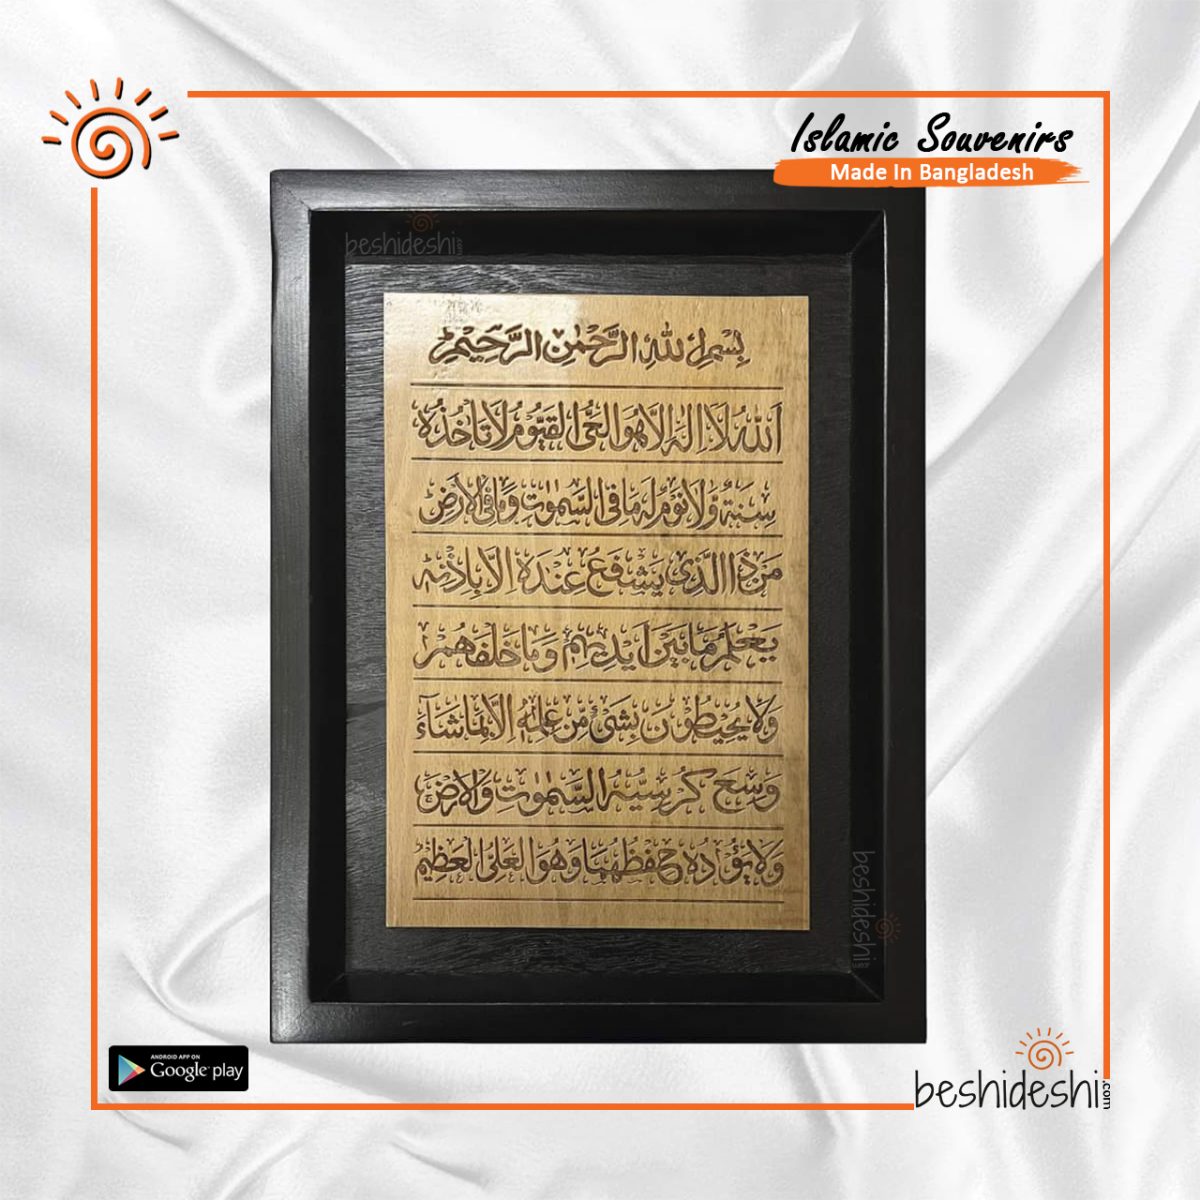 Islamic Souvenirs
Made In Bangladesh
beshideshi.com
بِسْمِ اللهِ الرَّحْمٰنِ الرَّحِيْمِ
اَللهُ لَا اِلٰهَ اِلَّا هُوَ الْحَىُّ الْقَيُّوْمُ لَا تَاْخُذُهٗ
سِنَةٌ وَّلَا نَوْمٌ لَهٗ مَا فِى السَّمٰوٰتِ وَمَا فِى الْاَرْضِ
مَنْ ذَا الَّذِىْ يَشْفَعُ عِنْدَهٗ اِلَّا بِاِذْنِهٖ
يَعْلَمُ مَا بَيْنَ اَيْدِيْهِمْ وَمَا خَلْفَهُمْ
وَلَا يُحِيْطُوْنَ بِشَىْءٍ مِّنْ عِلْمِهٖ اِلَّا بِمَا شَآءَ
وَسِعَ كُرْسِيُّهُ السَّمٰوٰتِ وَالْاَرْضَ
وَلَا يَئُوْدُهٗ حِفْظُهُمَا وَهُوَ الْعَلِىُّ الْعَظِيْمُ
beshideshi.com
ANDROID APP ON
Google play
beshideshi.com